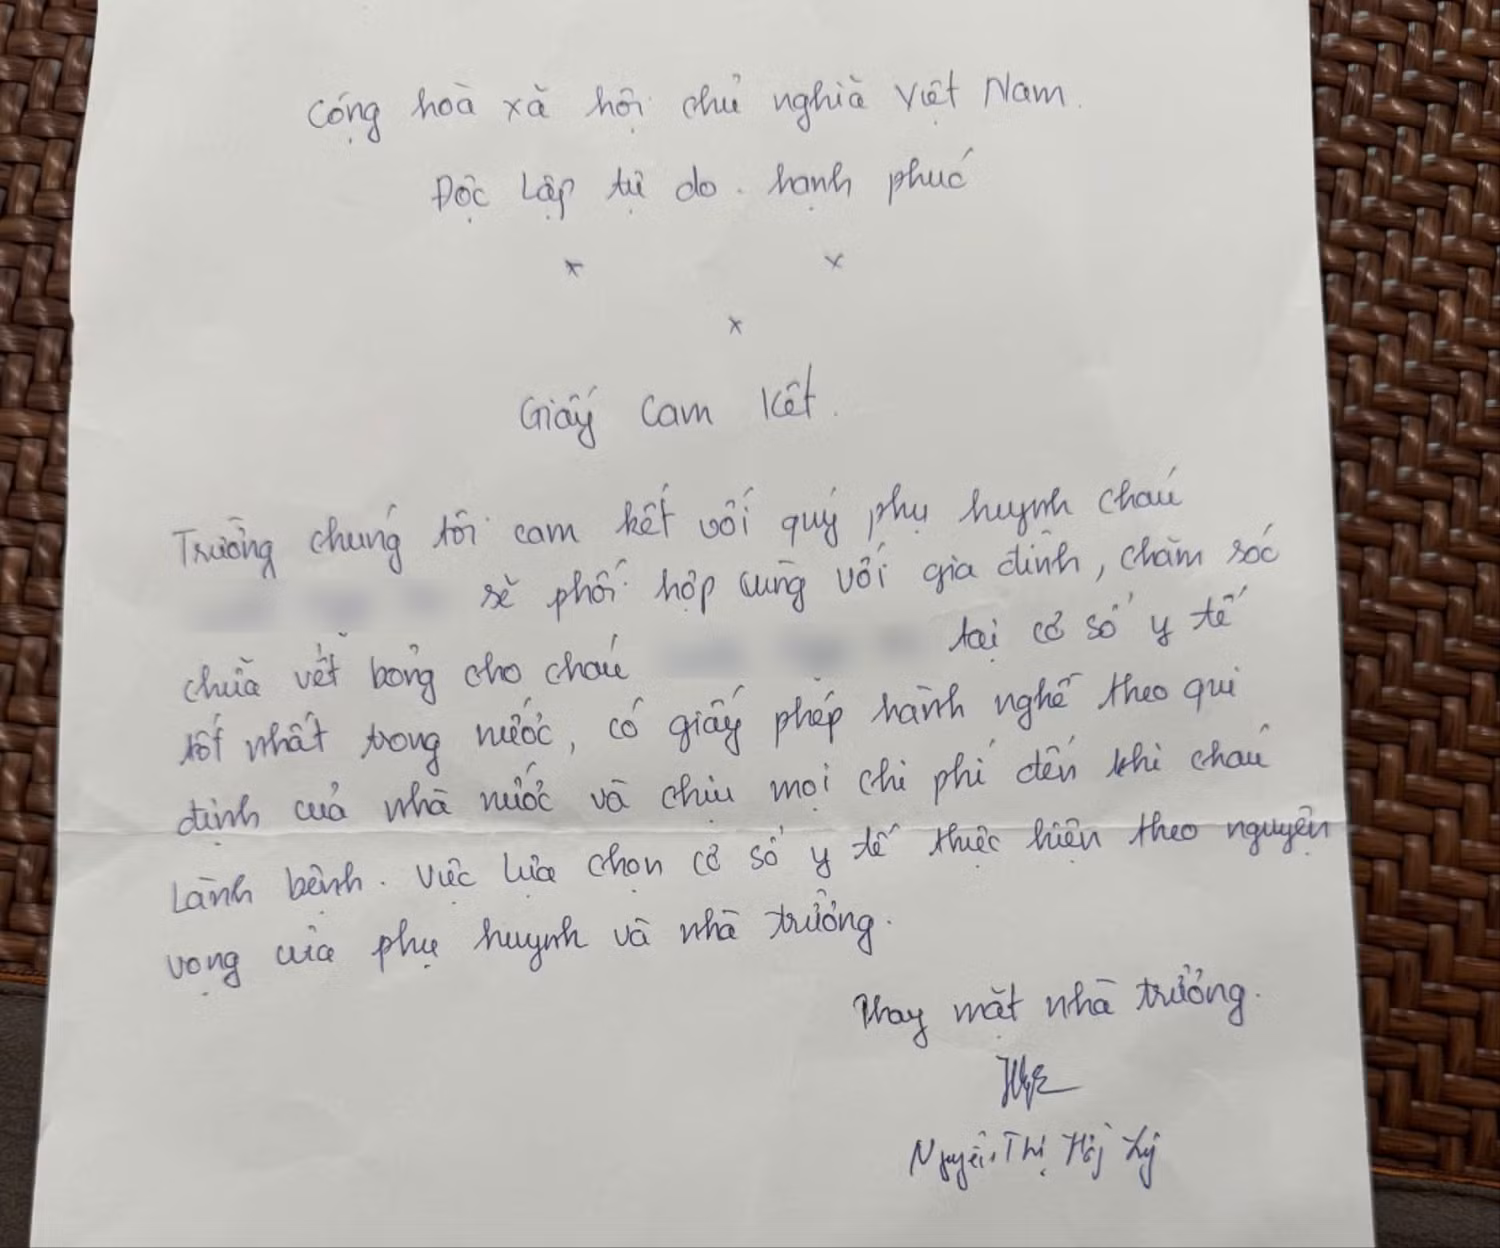 Cộng hoà xã hội chủ nghĩa Việt Nam.
Độc lập tự do. hạnh phúc
x x
x
Giấy cam kết.
Trường chúng tôi cam kết với quý phụ huynh cháu
sẽ phối hợp cùng với gia đình, chăm sóc
chữa vết bỏng cho cháu tại cơ sở y tế
tốt nhất trong nước, có giấy phép hành nghề theo qui
định của nhà nước và chịu mọi chi phí đến khi cháu
lành bệnh. Việc lựa chọn cơ sở y tế thực hiện theo nguyện
vọng của phụ huynh và nhà trường.
Thay mặt nhà trường.
Nguyễn Thị Lý